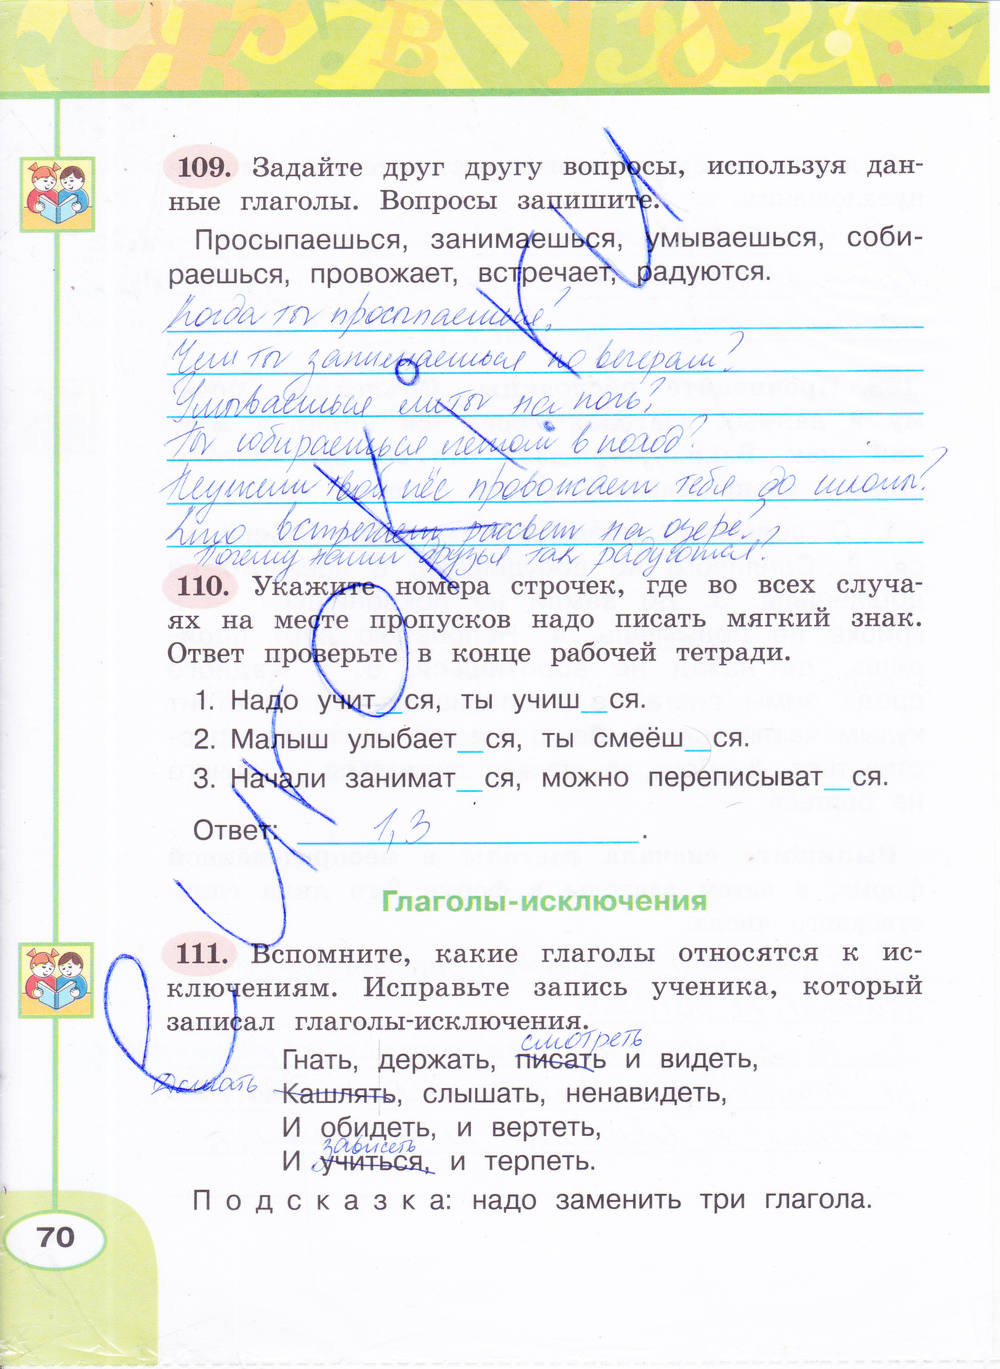 109. Задайте друг другу вопросы, используя дан-
ные глаголы. Вопросы запишите.
Просыпаешься, занимаешься, умываешься, соби-
раешься, провожает, встречает, радуются.
Когда ты просыпаешься?
Чем ты занимаешься по вечерам?
Умываешься ли ты на ночь?
Ты собираешься летом в поход?
Неужели твой пёс провожает тебя до школы?
Кто встречает рассвет на озере?
Почему наши друзья так радуются?
110. Укажите номера строчек, где во всех случа-
ях на месте пропусков надо писать мягкий знак.
Ответ проверьте в конце рабочей тетради.
1. Надо учит__ся, ты учиш__ся.
2. Малыш улыбает__ся, ты смеёш__ся.
3. Начали занимат__ся, можно переписыват__ся.
Ответ: 1,3.
Глаголы-исключения
111. Вспомните, какие глаголы относятся к ис-
ключениям. Исправьте запись ученика, который
записал глаголы-исключения.
смотреть
Гнать, держать, писать и видеть,
Дышать Кашлять, слышать, ненавидеть,
И обидеть, и вертеть,
зависеть
И учиться, и терпеть.
Подсказка: надо заменить три глагола.
70
eurokI.ru